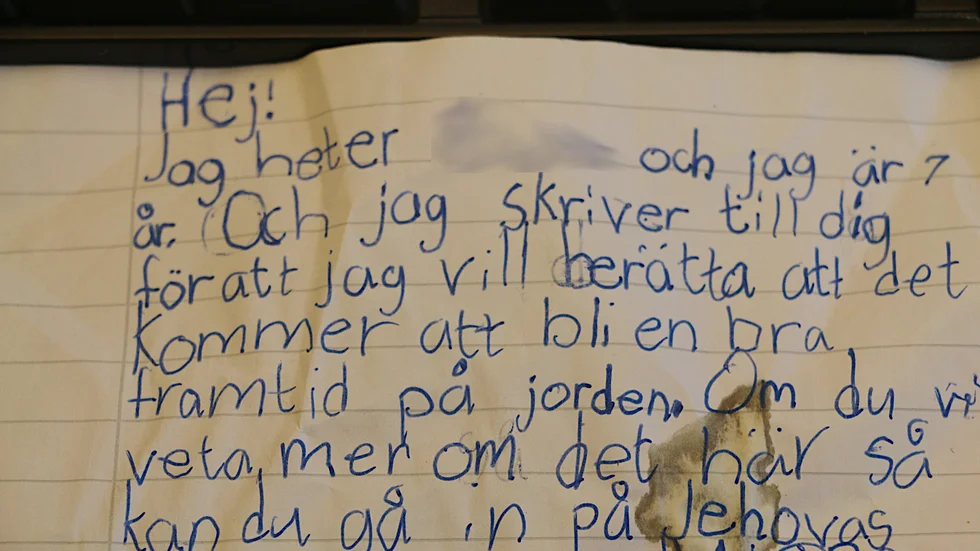 Hej!
Jag heter och jag är 7
år. Och jag skriver till dig
för att jag vill berätta att det
kommer att bli en bra
framtid på jorden. Om du vi
veta mer om det här så
kan du gå in på Jehovas